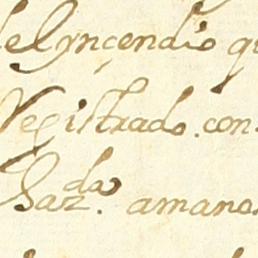 el ynçendio qu
Registrado. con
Saz.da amano